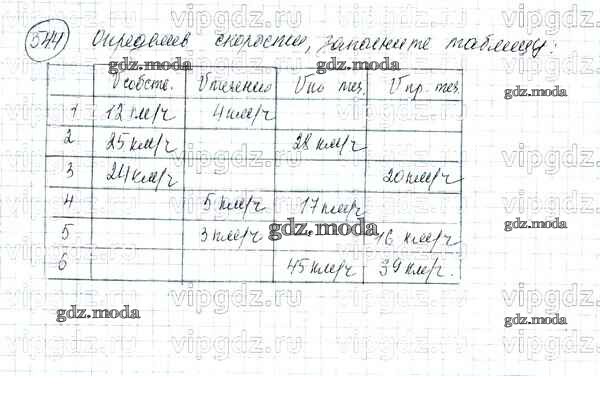 544 Определив скорости, заполните таблицу:
Vсобств. Vтечения Vпо теч. Vпр. теч.
1 12 км/ч 4 км/ч
2 25 км/ч 28 км/ч
3 24 км/ч 20 км/ч
4 5 км/ч 17 км/ч
5 3 км/ч 16 км/ч
6 45 км/ч 39 км/ч.
vipgdz.ru
gdz.moda